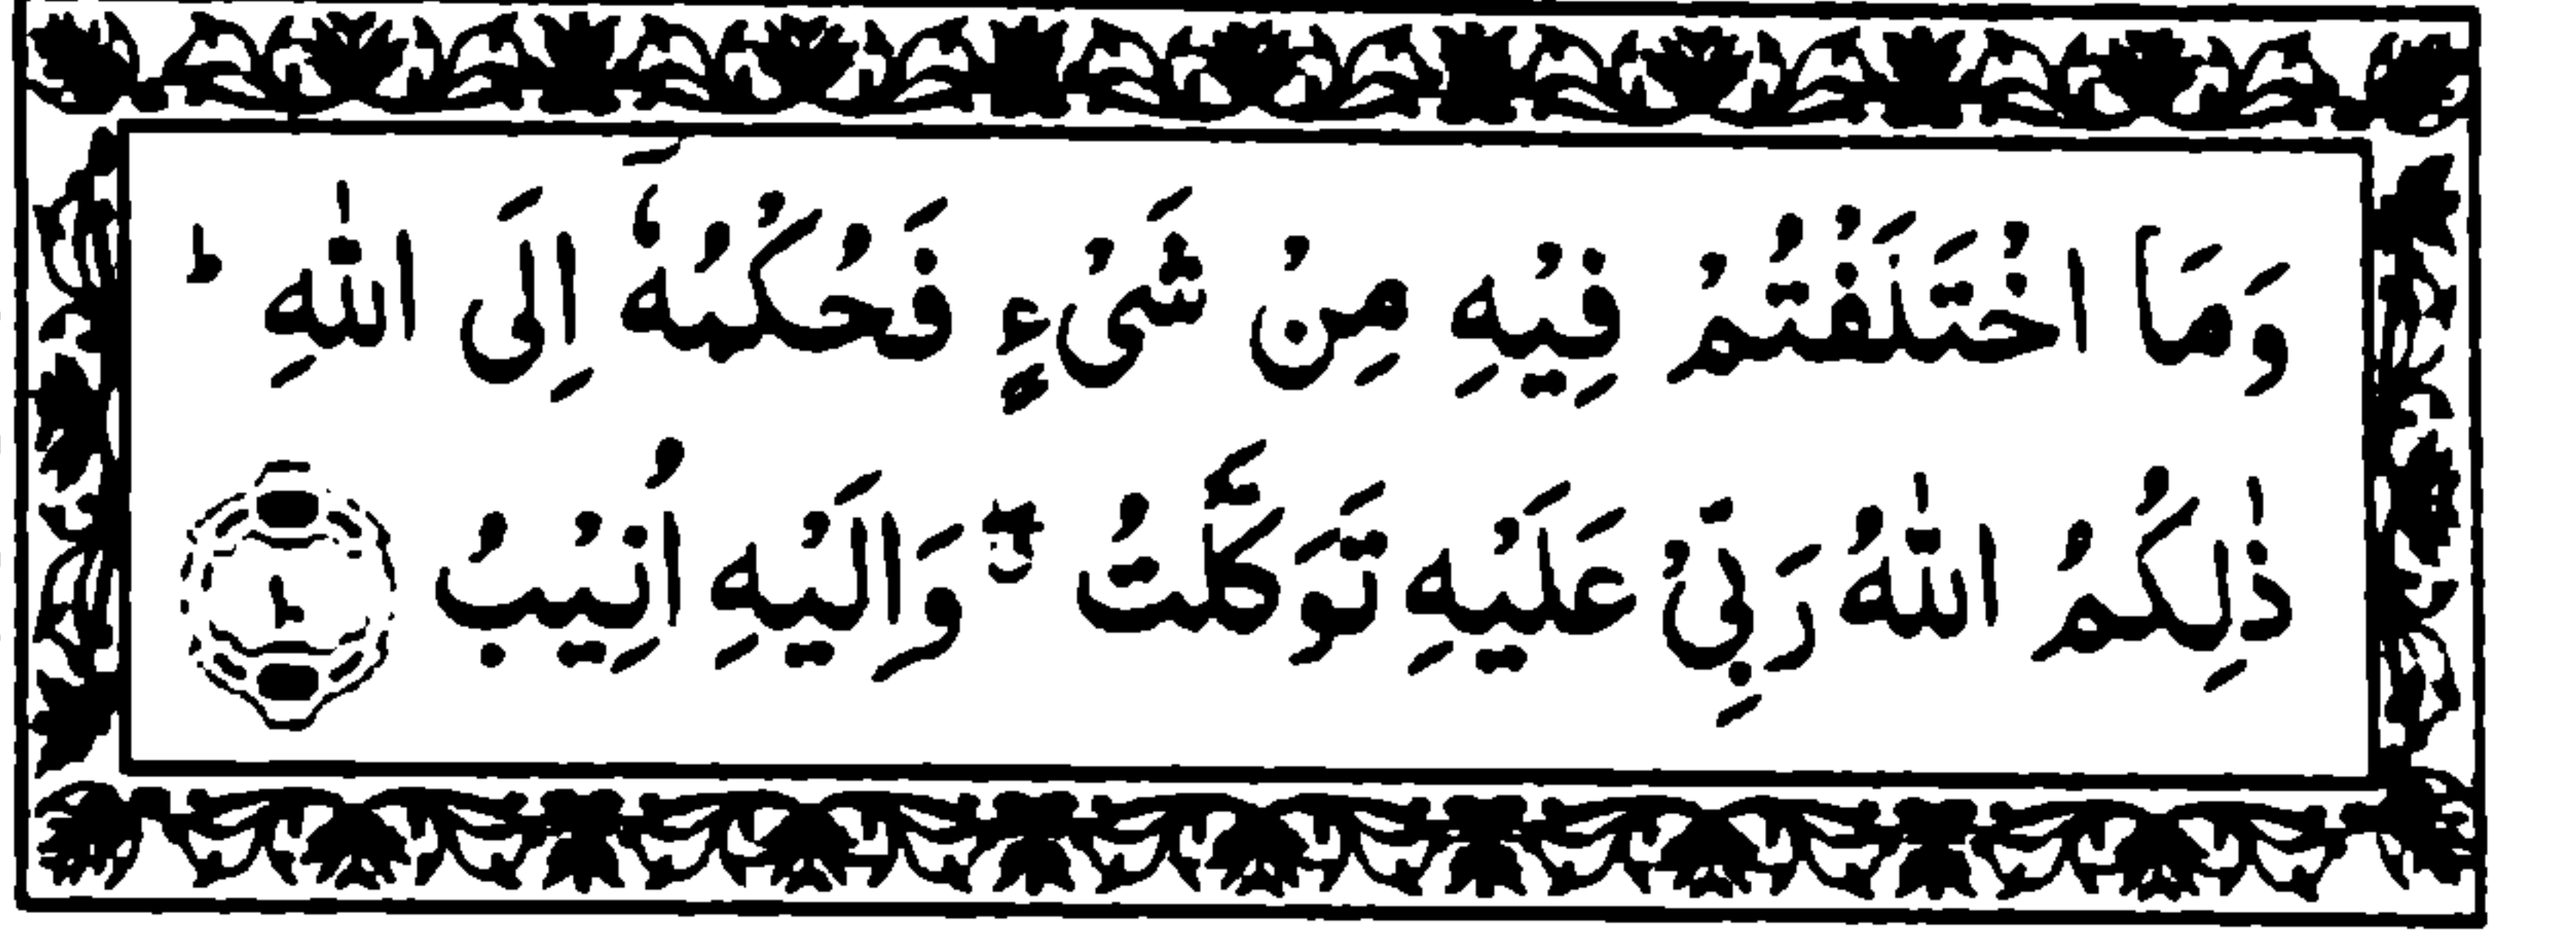 وَمَا اخْتَلَفْتُمْ فِيْهِ مِنْ شَیْءٍ فَحُكْمُهٗۤ اِلَی اللّٰهِ ؕ
ذٰلِكُمُ اللّٰهُ رَبِّیْ عَلَيْهِ تَوَكَّلْتُ ۖۗ وَاِلَيْهِ اُنِيْبُ